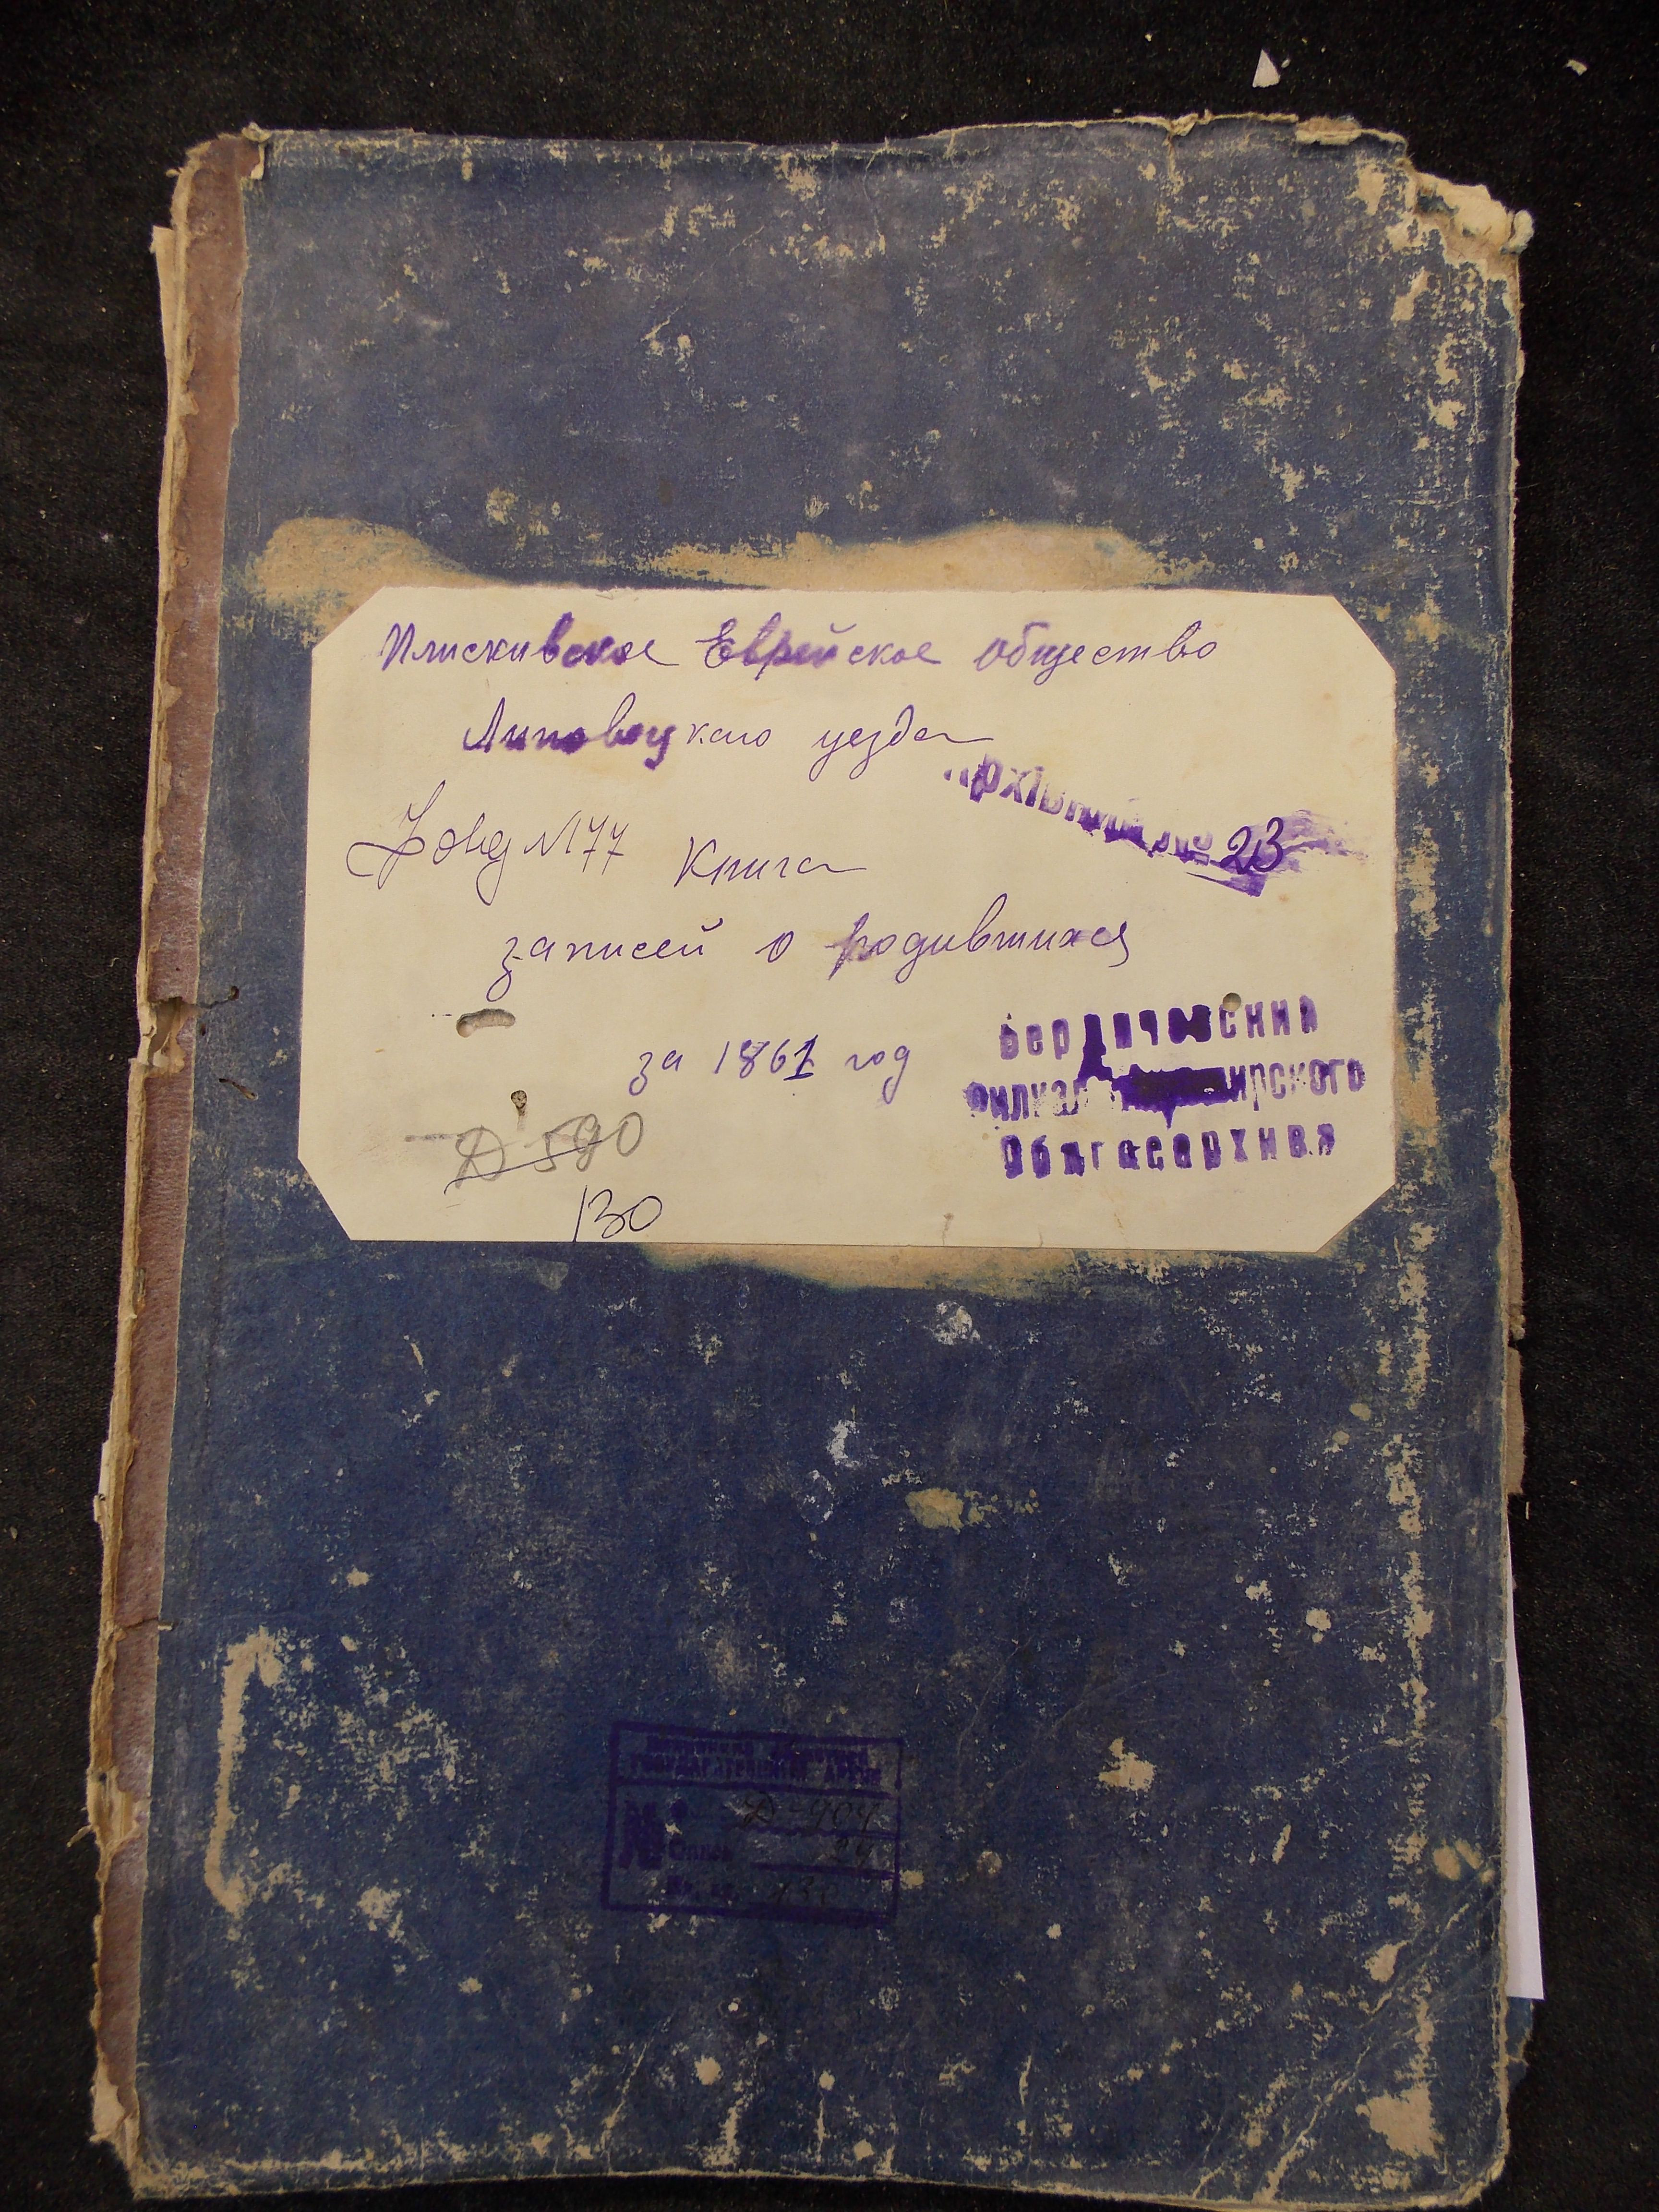 Плискивское Еврейское общество
Липовецкого уезда
Архівний № 23
Фонд №77 Книга
записей о родившихся
за 1861 год
Бердичевский
Филиал ирского
Облгосархива
Д 590
130
Д-904
24
130